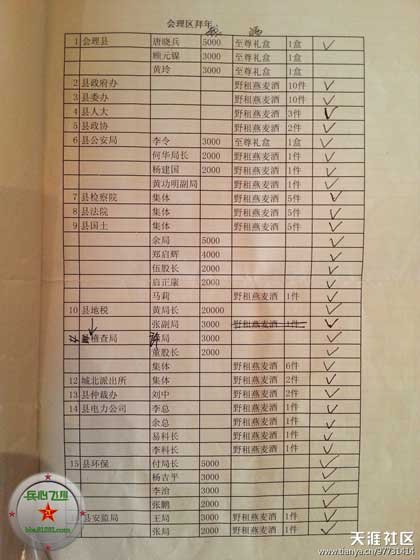 会理区拜年
酒
1 会理县 唐晓兵 5000 至尊礼盒 1盒
顾元镍 3000 至尊礼盒 1盒
黄玲 3000 至尊礼盒 1盒
2 县政府办 野租燕麦酒 10件
3 县委办 野租燕麦酒 10件
4 县人大 野租燕麦酒 3件
5 县政协 野租燕麦酒 2件
6 县公安局 李令 3000 至尊礼盒 1盒
何华局长 2000 野租燕麦酒 1件
杨建国 2000 野租燕麦酒 1件
黄功明副局 野租燕麦酒 1件
7 县检察院 集体 野租燕麦酒 5件
8 县法院 集体 野租燕麦酒 5件
9 县国土 集体 野租燕麦酒 5件
余局 5000
郑启辉 4000
伍股长 2000
启正康 2000
马莉 野租燕麦酒 1件
10 县地税 黄局长 20000
张副局 3000 野租燕麦酒 1件
稽查局 许局 3000
董股长 2000
集体 野租燕麦酒 6件
12 城北派出所 集体 野租燕麦酒 2件
13 县仲裁办 刘中 2000 野租燕麦酒 2件
14 县电力公司 李总 野租燕麦酒 1件
余总 野租燕麦酒 1件
易科长 野租燕麦酒 1件
李科长 野租燕麦酒 1件
15 县环保 付局长 5000
杨吉平 3000
李治 3000
张鹏 2000
县安监局 王局 3000 野租燕麦酒 1件
张局 2000 野租燕麦酒 1件
民心飞扬
bbs.81281.com
天涯社区
www.tianya.cn/97731414